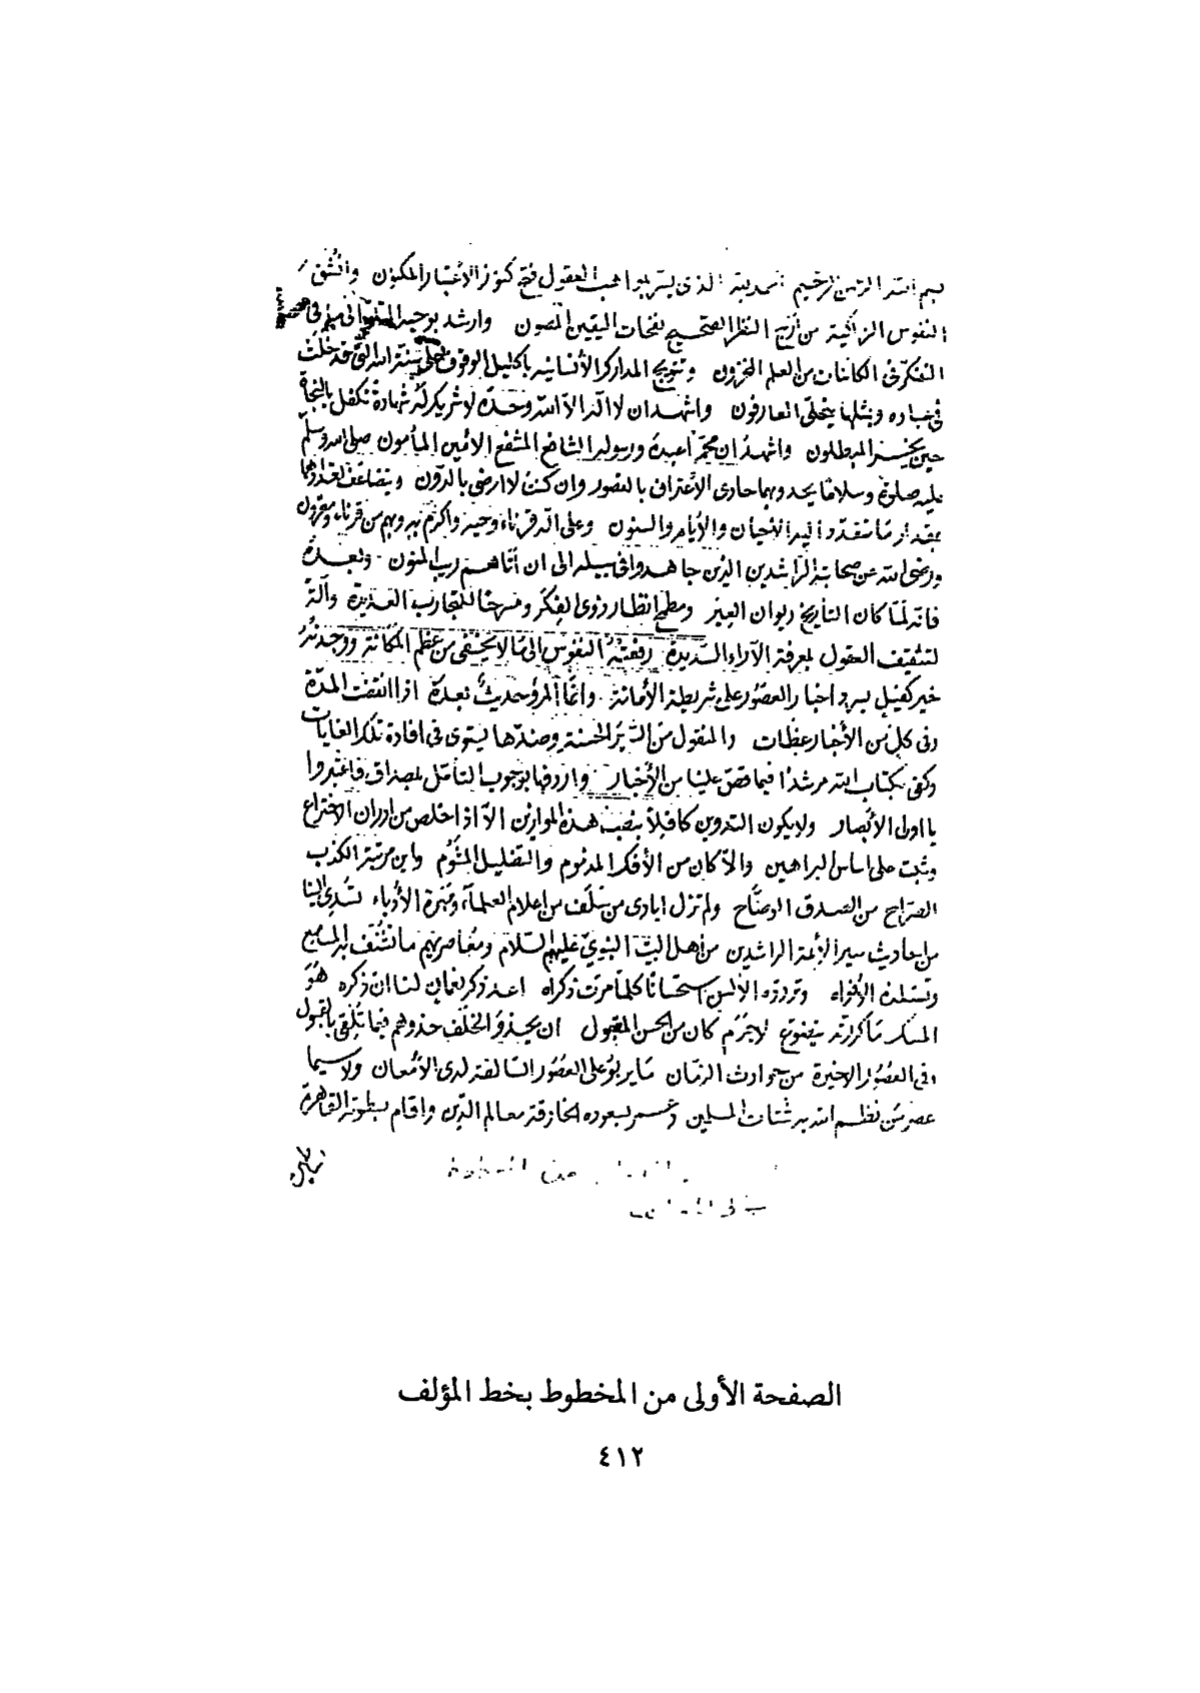 بسم الله الرحمن الرحيم الحمد لله الذي يسر بمواهب العقول فتح كنوز الاعتبار المكنون وانشق
النفوس الزاكية من أريج النظر الصحيح نفحات اليقين المصون وارشد بوحيه في
التفكر في الكائنات من العلم المخزون وتتويج المدارك الأنسانية بأكليل الوقوف على سنة الله التي قد خلت
في عباده وبمثلها يتحلى العارفون واشهد ان لا اله الا الله وحده لا شريك له شهادة تكفل بالنجاة
حين يخسر المبطلون واشهد ان محمدا عبده ورسوله الشافع المشفع الامين المأمون صلى الله وسلم
عليه صلوة وسلاما يحدو بهما حادي الأعتراف بالقصور وان كنت لا ارضى بالدون ويتضاعف تعدادهما
بمقدار ما تتعدد اليه الاحيان والأيام والسنون وعلى آله قرناء وحيه واكرم بهم من قرناء
ورضي الله عن صحابته الراشدين الذين جاهدوا في سبيله الى ان أتاهم ريب المنون وبعد
فانه لما كان التأريخ ديوان العبر ومطمح انظار ذوي الفكر ومنهجا للتجارب العديدة وآلة
لتثقيف العقول لمعرفة الآراء السديدة رفعته النفوس الى ما لا يخفى من عظم المكانة ووجدته
خير كفيل بسرد اخبار العصور على شريطة الأمانة وانما المرؤ حديث بعده اذا انقضت المدة
وفي كل من الأخبار عظات والمنقول من السير الحسنة وضدها يستوي في افادة تلك الغايات
وكفى بكتاب الله مرشدا فيما قص علينا من الأخبار واردفها بوجوب التأمل بمصداق فاعتبروا
يا اولي الأبصار ولا يكون التدوين كافلا بنصب هذه الموازين الا اذا خلص من ادران الاختراع
وثبت على اساس البراهين والا كان من الأفك المذموم والتضليل واين مرتبة الكذب
الصراح من الصدق الوضاح ولم تزل ايادي من سلف من اعلام العلماء ومهرة الأدباء تسدي الينا
من احاديث سير الأئمة الراشدين من اهل البيت النبوي عليهم السلام ومعاصريهم ما تشنف به المسامع
وتستلذه الأفواه وتردده الألسن استحسانا كلما مرت ذكراه اعد ذكر نعمان لنا ان ذكره هو
المسك ما كررته يتضوع لا جرم كان من الحسن المقبول ان يحذو الخلف حذوهم فيما تلقى بالقبول
وفي العصور الاخيرة من حوادث الزمان ما يربو على العصور السالفة لدى الأمعان ولا سيما
عصر من نظم الله به شتات المسلمين وعمر بسعوده الخارقة معالم الدين واقام بسطوته القاهرة
الصفحة الأولى من المخطوط بخط المؤلف
٤١٢